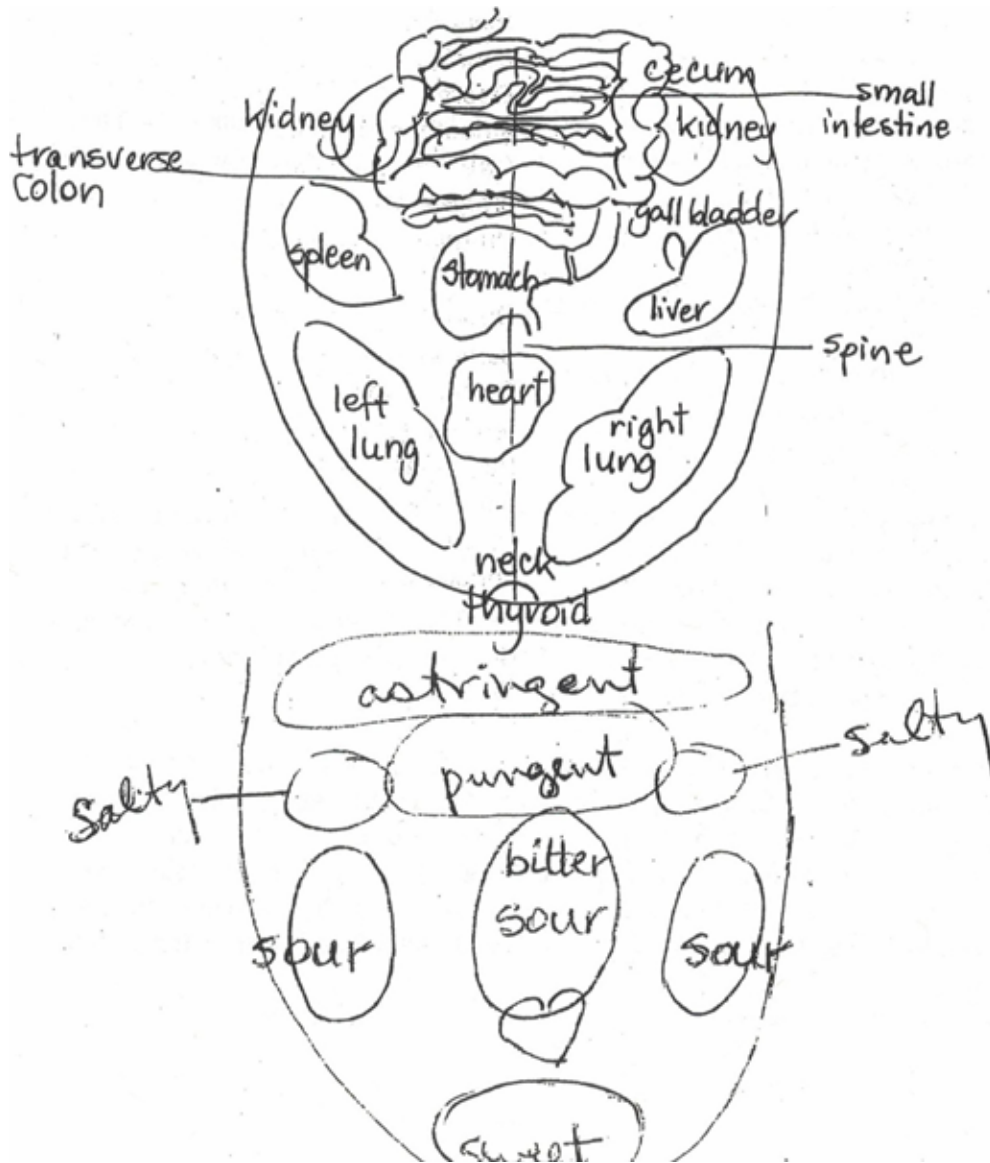 cecum
small
intestine
kidney
kidney
transverse
colon
gall bladder
spleen
stomach
liver
spine
heart
left
lung
right
lung
neck
thyroid
astringent
salty
pungent
salty
bitter
sour
sour
sour
sweet